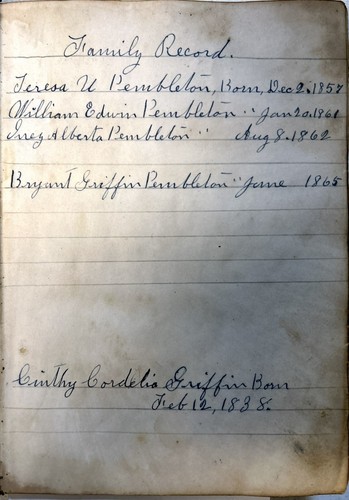 Family Record.
Teresa U Pembleton, Born, Dec 2. 1857
William Edwin Pembleton " Jan 20. 1861
Inez Alberta Pembleton " Aug 8. 1862
Bryant Griffin Pembleton " June 1865
Cinthy Cordelia Griffin Born
Feb 12, 1838.